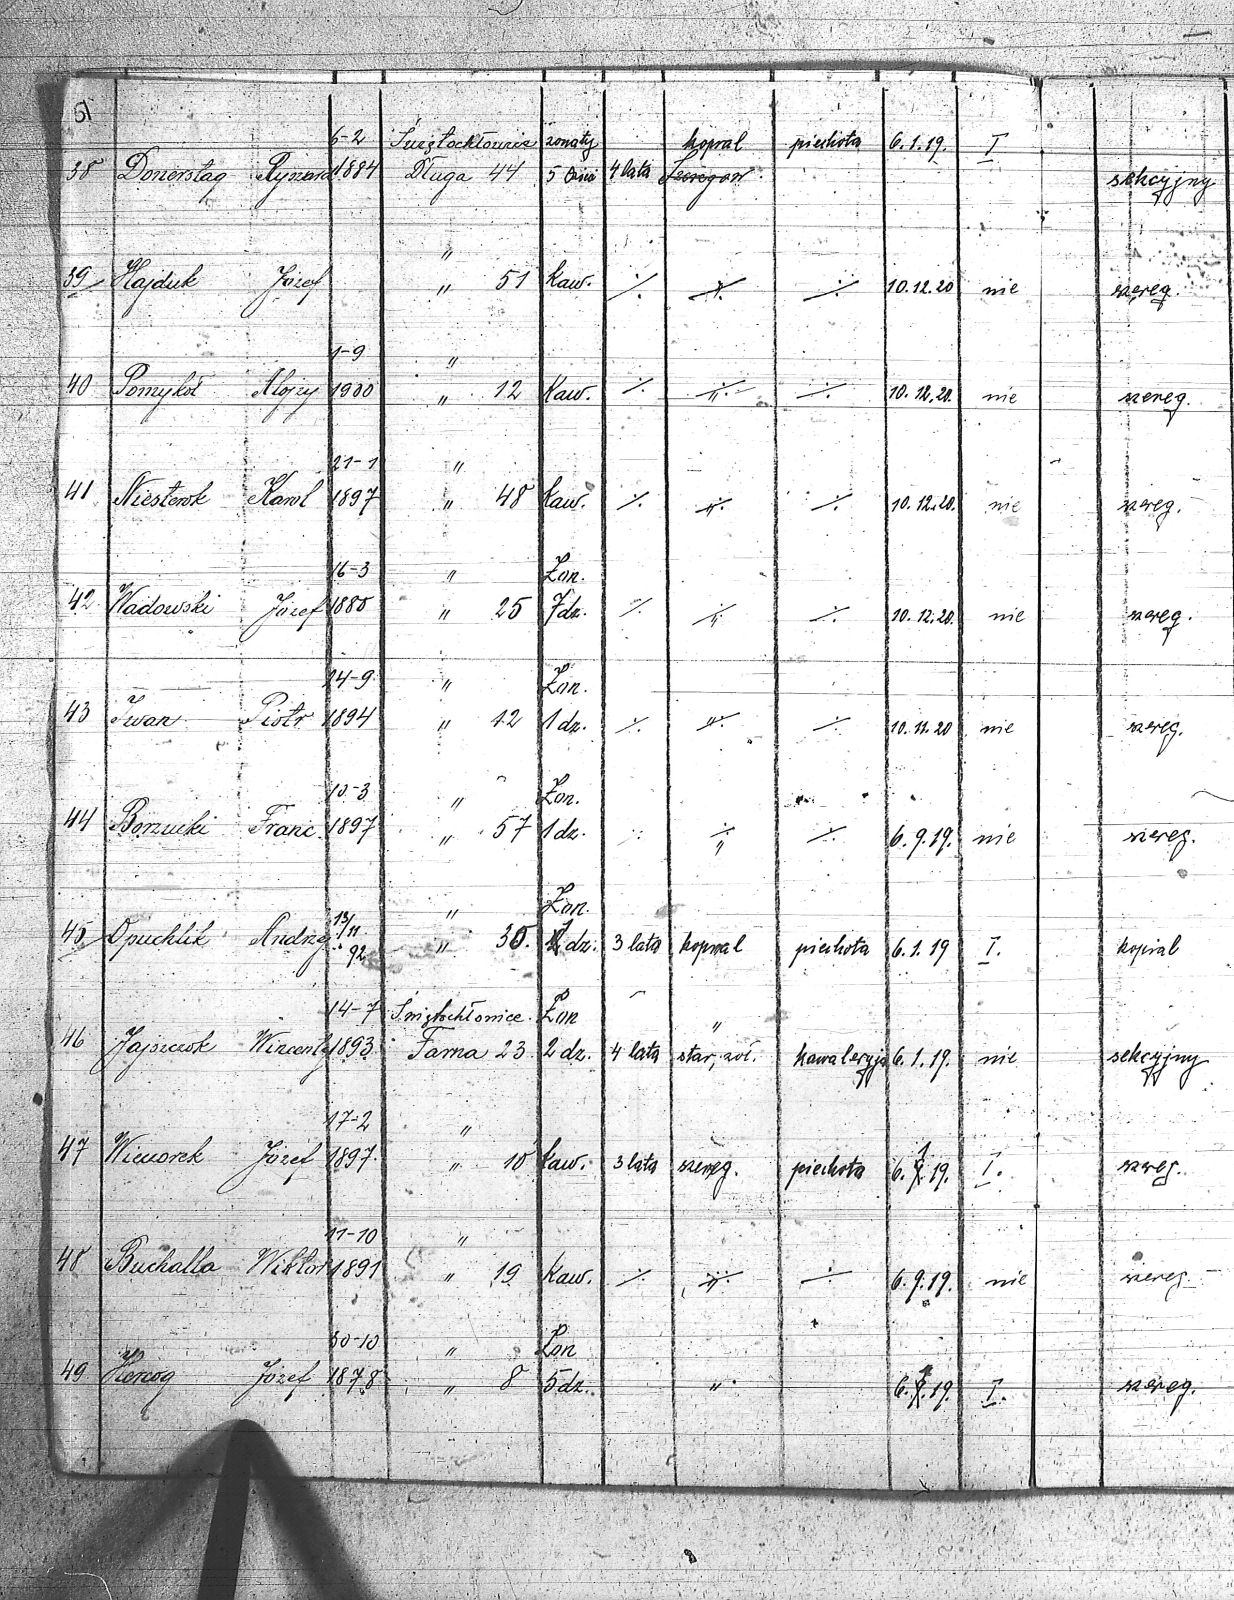 51
6-2 Świętochłowice żonaty kopral piechota 6.1.19. I
38 Donerstag Ryszard 1884 Długa 44 5 4 lata Szeregow. sekcyjny
"
39 Hajduk Józef " 51 kaw. ./. ./. ./. 10.12.20 nie szereg.
1-9 "
40 Pomykoł Alojzy 1900 " 12 kaw. ./. ./. ./. 10.12.20. nie szereg.
21-1 "
41 Niesterok Karol 1897 " 48 kaw. ./. ./. ./. 10.12.20. nie szereg.
16-3 " Żon.
42 Wadowski Józef 1880 " 25 7 dz. ./. ./. ./. 10.12.20. nie szereg.
24-9 " Żon.
43 Iwan Piotr 1894 " 12 1 dz. ./. ./. ./. 10.12.20 nie szereg.
10-3 " Żon.
44 Borzucki Franc. 1897 " 57 1 dz. ./. ./. ./. 6.9.19. nie szereg.
13/11 " Żon.
45 Opuchlik Andrzej 92 " 35. dz. 3 lata kopral piechota 6.1.19 I. kopral
14-7 Świętochłowice. Żon "
46 Jajszczok Wincenty 1893 Farna 23 2 dz. 4 lata star. żoł. kawaleryja 6.1.19. nie sekcyjny
17-2 " 1
47 Wieczorek Józef 1897 " 10 kaw. 3 lata szereg. piechota 6.9.19. I. szereg.
11-10 "
48 Buchalla Wiktor 1891 " 19 kaw. ./. ./. ./. 6.9.19. nie szereg.
30-10 " Żon 1
49 Herzog Józef 1878 " 8 5 dz. " 6.9.19. I. szereg.